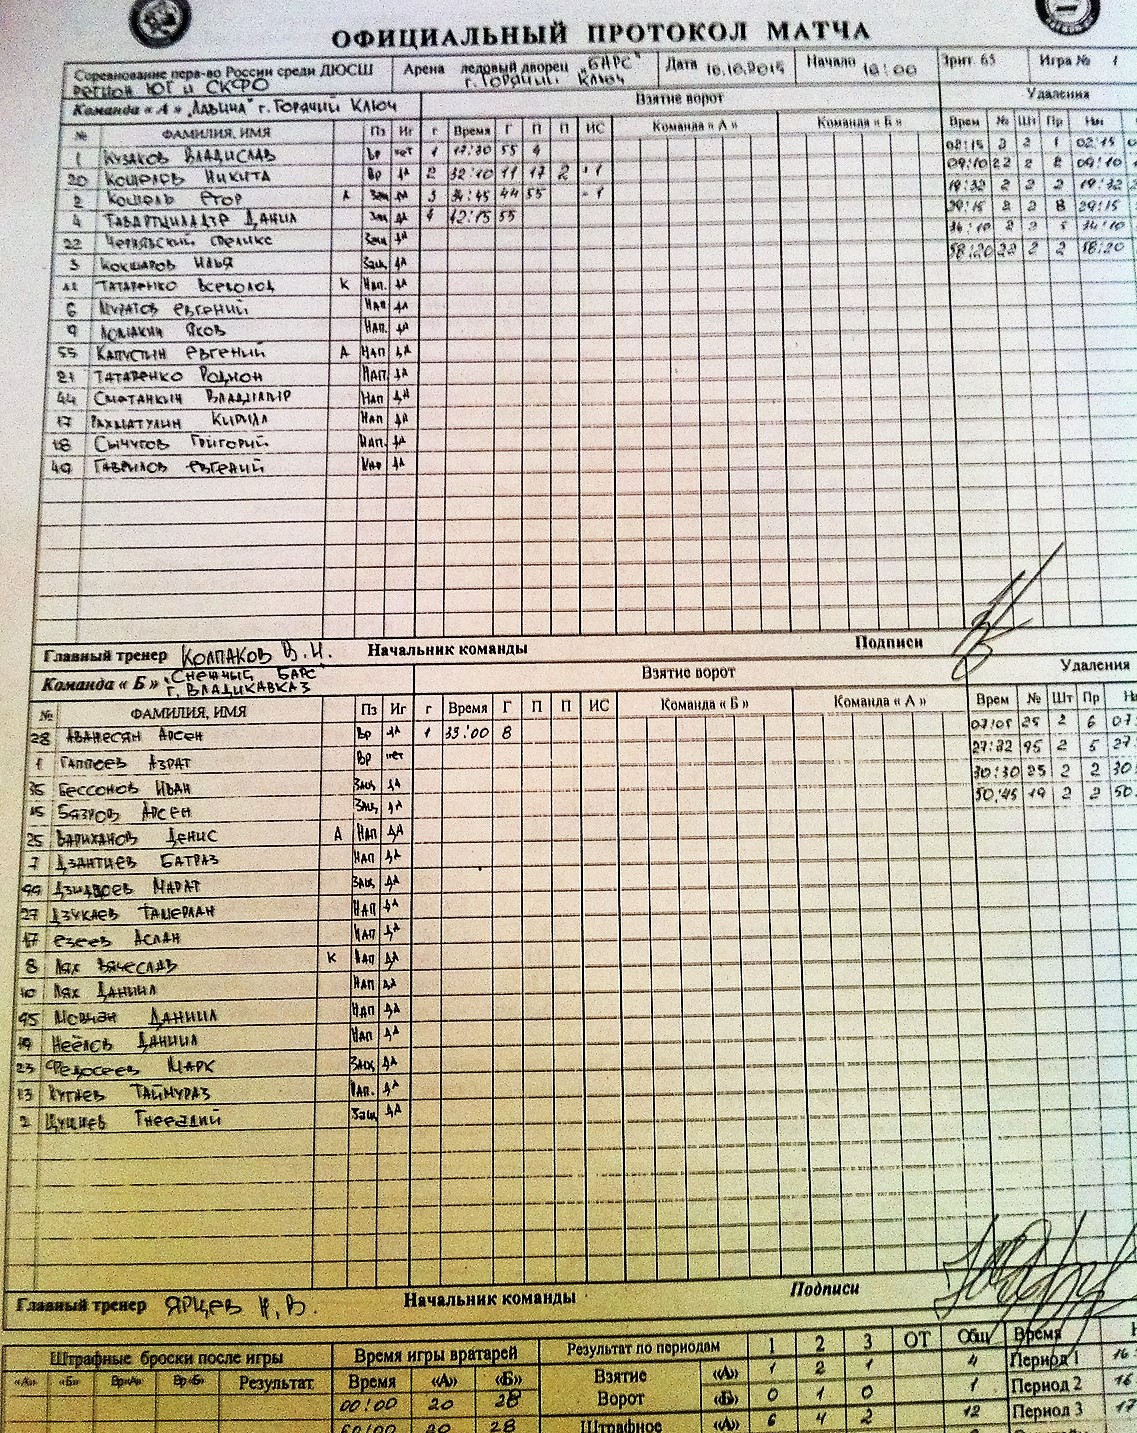 ОФИЦИАЛЬНЫЙ ПРОТОКОЛ МАТЧА
Соревнование перв-во России среди ДЮСШ Арена ледовый дворец „БАРС" Дата 10.10.2015 Начало 10:00 Зрит. 65 Игра № 1
РЕГИОН ЮГ и СКФО г. Горячий Ключ
Команда « А » „Лавина" г. Горячий Ключ Взятие ворот Удаления
№ ФАМИЛИЯ, ИМЯ Пз Иг г Время Г П П ИС Команда « А » Команда « Б » Врем № Шт Пр
1 Кузаков Владислав Вр нет 1 17:30 55 4 08:15 2 2 1 02:15
20 Кошелев Никита Вр да 2 32:10 11 17 2 +1 09:10 22 2 8 09:10
2 Кошель Егор А Защ да 3 34:45 44 55 -1 19:32 2 2 2 19:32
4 Данил Защ да 4 42:15 55 29:15 2 2 8 29:15
22 Защ да 34:10 2 2 5 34:10
3 Кокшаров Илья Защ да 58:20 22 2 2 58:20
11 Татаренко Всеволод К Нап. да
6 Муратов Евгений Нап да
9 Ломакин Яков Нап. да
55 Капустин Евгений А Нап да
21 Татаренко Родион Нап. да
44 Сметанкин Владимир Нап да
17 Рахматулин Кирилл Нап да
18 Сычугов Григорий Нап. да
49 Гаврилов Евгений Нап да
Главный тренер Колпаков В.И. Начальник команды Подписи
Команда « Б » „Снежный Барс" г. Владикавказ Взятие ворот Удаления
№ ФАМИЛИЯ, ИМЯ Пз Иг г Время Г П П ИС Команда « Б » Команда « А » Врем № Шт Пр
28 Аванесян Арсен Вр да 1 33:00 8 07:05 25 2 6
1 Гаппоев Азрат Вр нет 27:32 95 2 5
35 Бессонов Иван Защ да 30:30 25 2 2
15 Бязров Арсен Защ да 50:45 19 2 2
25 Вариханов Денис А Нап да
7 Дзантиев Батраз Нап да
99 Марат Защ да
27 Дзукаев Тамерлан Нап да
17 Езеев Аслан Нап да
8 Лях Вячеслав К Нап да
10 Лях Даниил Нап да
95 Мовчан Даниил Нап да
19 Неёлов Даниил Нап да
23 Федосеев Марк Защ да
13 Хугаев Таймураз Нап. да
2 Защ да
Главный тренер Ярцев И.В. Начальник команды Подписи
Штрафные броски после игры Время игры вратарей Результат по периодам 1 2 3 ОТ Общ Время
«А» «Б» Вр«А» Вр«Б» Результат Время «А» «Б» Взятие «А» 1 2 1 4 Период 1 16
00:00 20 28 Ворот «Б» 0 1 0 1 Период 2 16
60:00 20 28 Штрафное «А» 6 4 2 12 Период 3 17